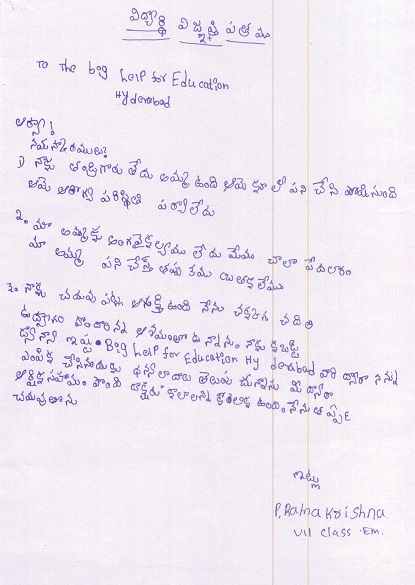 విద్యార్థి విజ్ఞప్తి పత్రము
To the big help for Education
Hyderabad
అక్కా!
నమస్కారములు!
1) నాకు తండ్రిగారు లేదు అమ్మ ఉంది ఆమె కూలీ పని చేసి పోషిస్తుంది
ఆమె ఆరోగ్య పరిస్థితి పర్వాలేదు
2. మా అమ్మకు అంగవైకల్యము లేదు మేము చాలా పేదలాలం
మా అమ్మ పని చేస్తే తప్ప మేము
3. నాకు చదువు పట్ల ఆసక్తి ఉంది నేను చక్కగా చదివి
ఉద్యోగం పొందాలన్న ఆశయంతో
Big help for Education Hyderabad వారి ద్వారా నన్ను
ఎంపిక చేసినందుకు ధన్యవాదాలు తెలుపు చున్నాను మీ ద్వారా
ఆర్థిక సహాయం పొంది కావాలనే కోరిక ఉంది. నేను తప్పక
చదువుతాను
ఇట్లు
P. Ratna Krishna
VII class .Em.